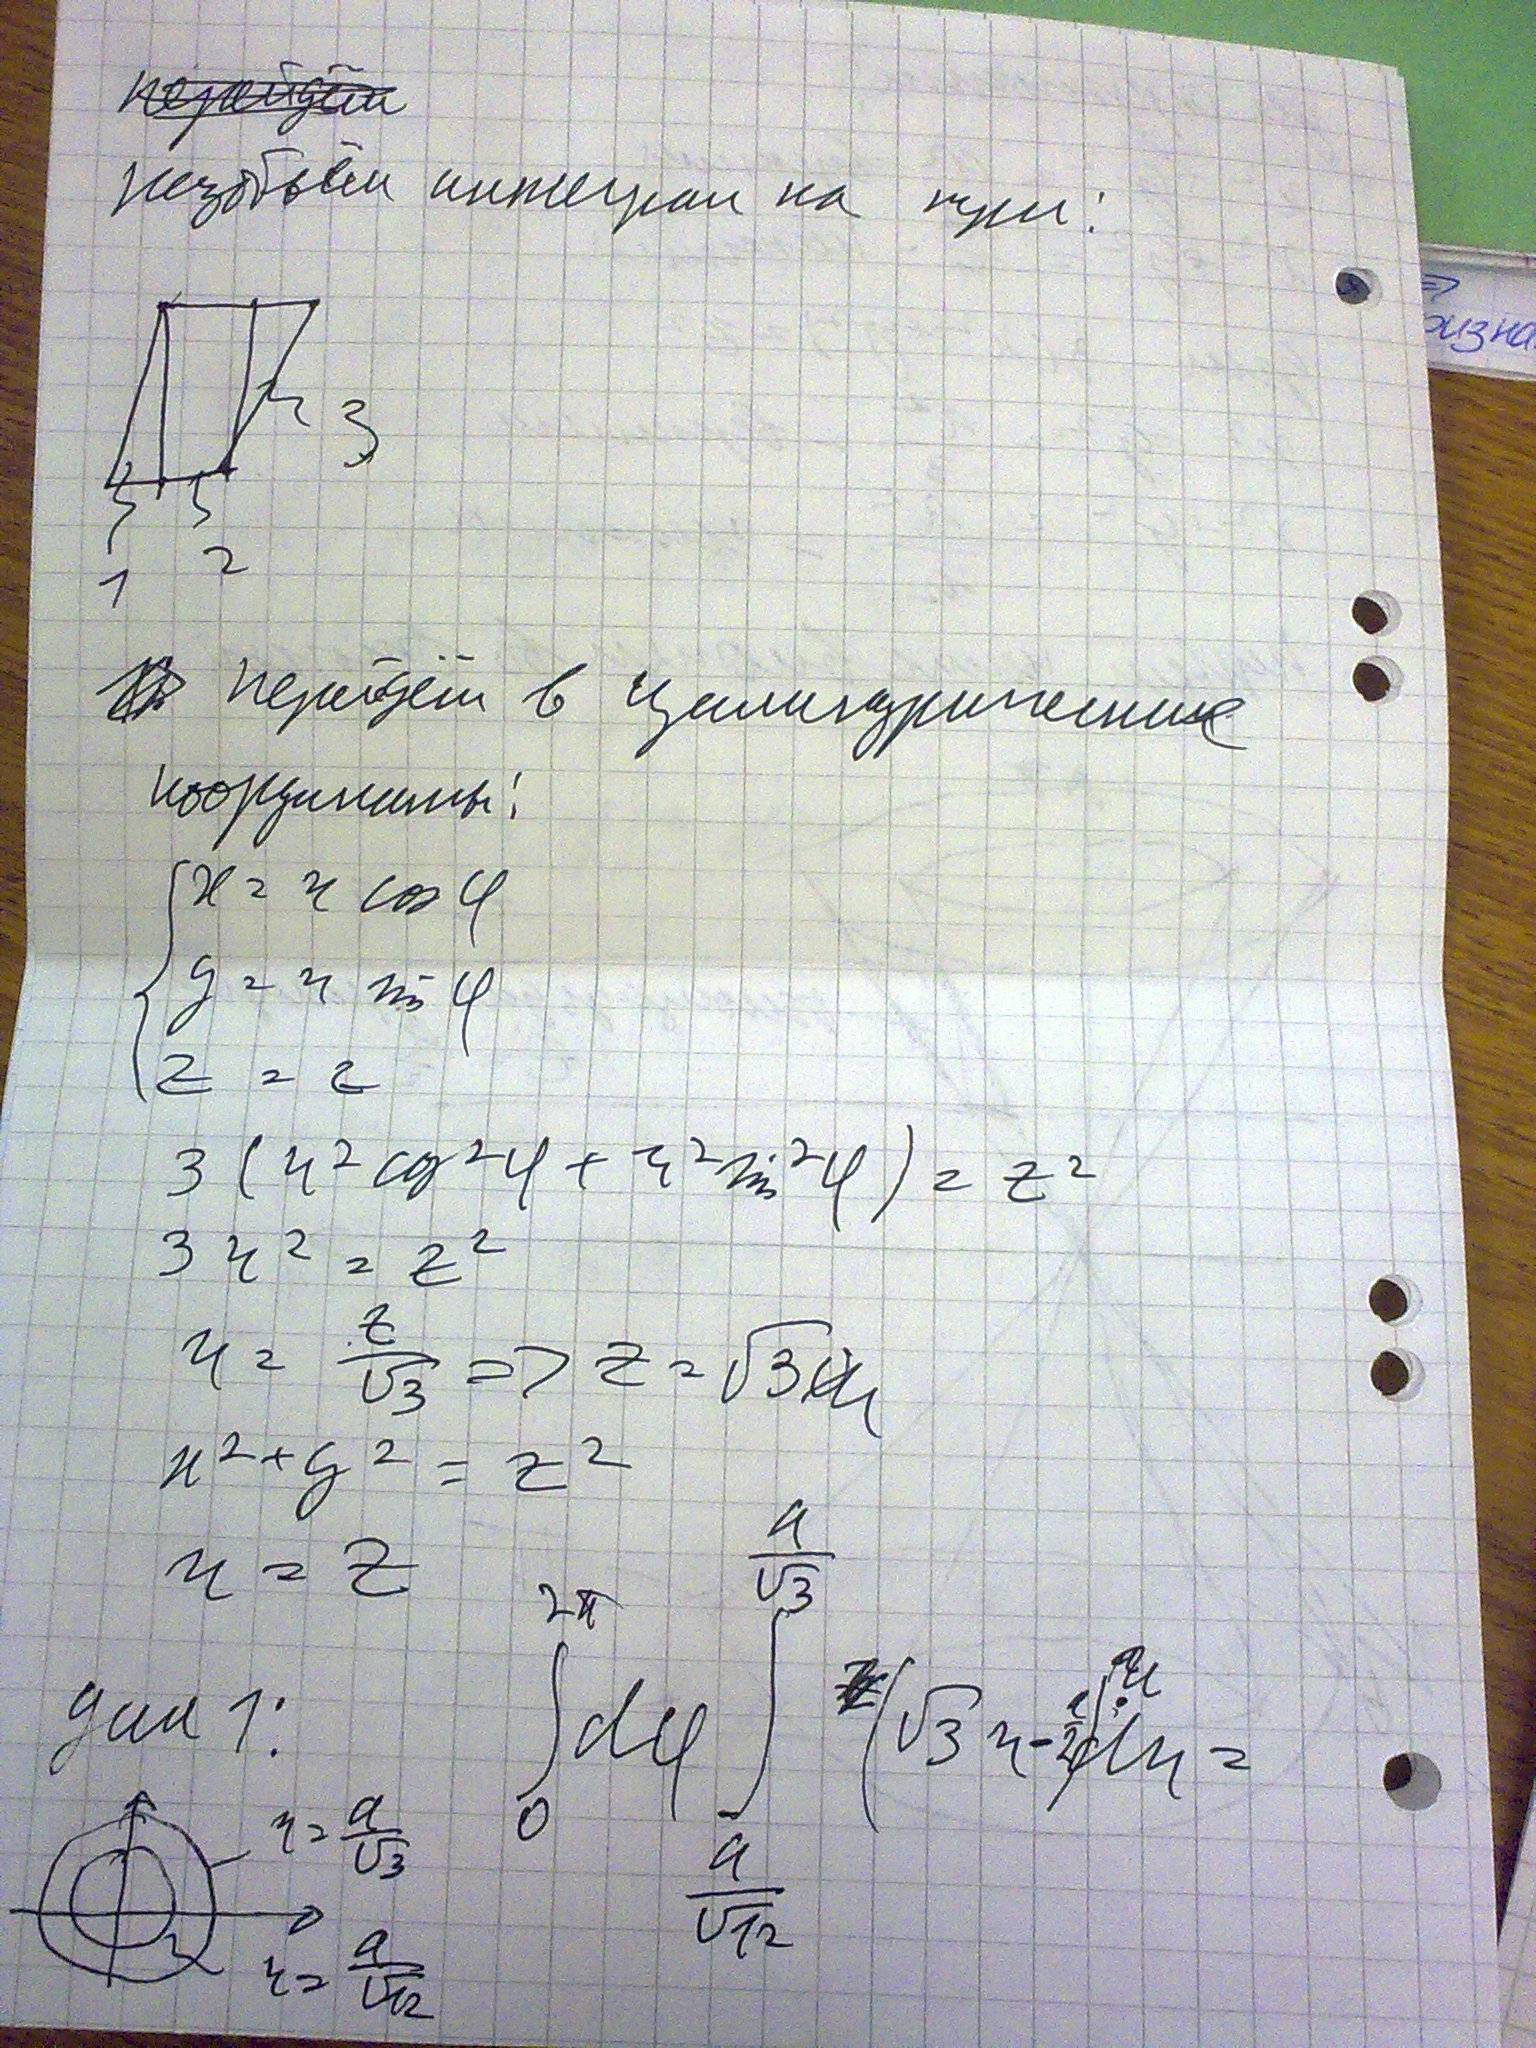 перейдём
разобьём интеграл на три:
3
1 2
перейдём в цилиндрические
координаты:
x = r cos φ
y = r sin φ
z = z
3 (r² cos² φ + r² sin² φ) = z²
3 r² = z²
r = z/√3 => z = √3 r
x² + y² = z²
r = z
для 1: ∫₀^{2π} dφ ∫_{a/√12}^{a/√3} (√3 r - a/2) r dr =
r = a/√3
r = a/√12
=>
призна